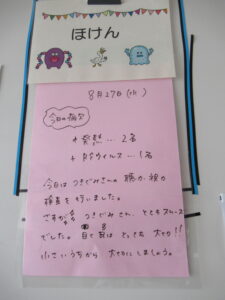 ほけん
8月27日(木)
今日の病欠
・発熱…2名
・RSウイルス…1名
今日はつきぐみさんの聴力、視力
検査を行いました。
さすが つきぐみさん、とてもスムーズ
でした。目と耳はとっても大切!!
小さいうちから大切にしましょう。